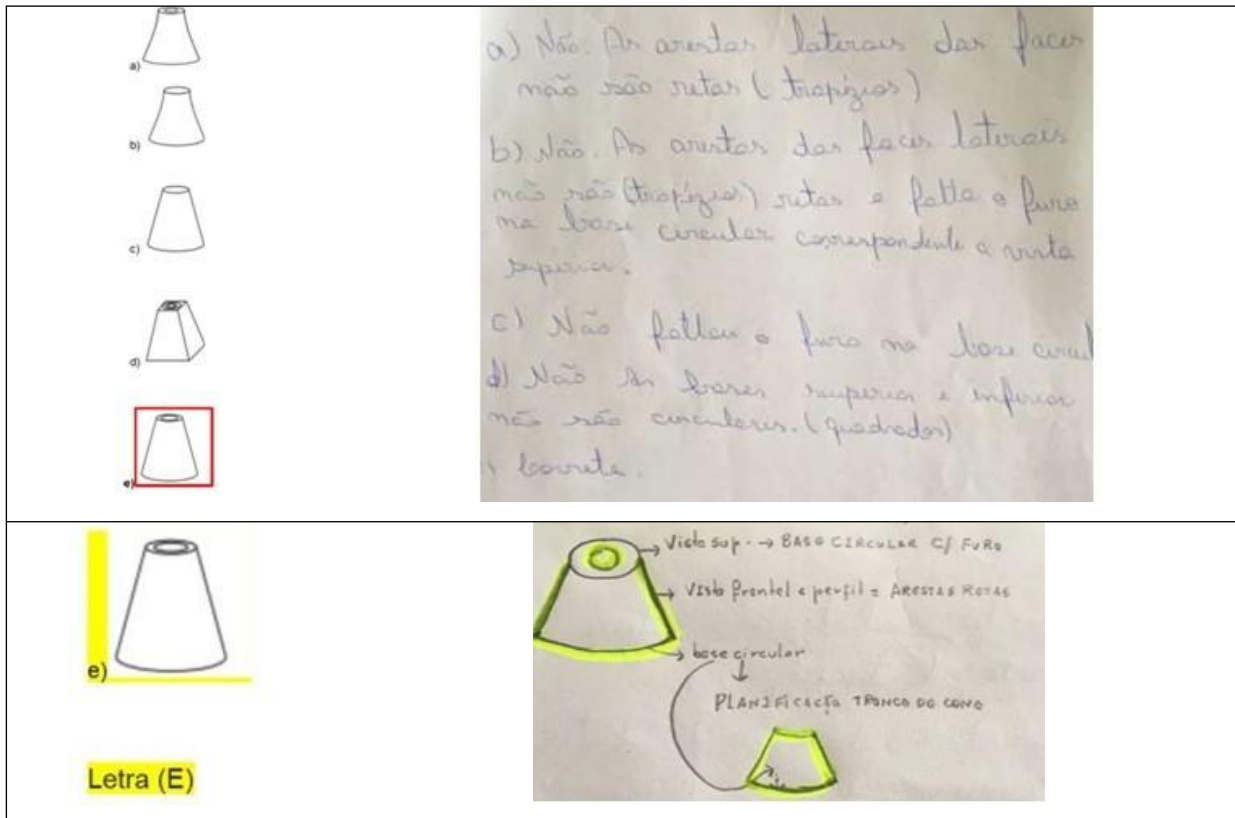 a)
b)
c)
d)
e)
a) Não. As arestas laterais das faces
não são retas (trapézios)
b) Não. As arestas das faces laterais
não são (trapézios) retas e falta o furo
na base circular correspondente a vista
superior.
c) Não faltou o furo na base circul
d) Não As bases superior e inferior
não são circulares. (quadrados)
correta.
e)
Letra (E)
Vista sup. → BASE CIRCULAR C/ FURO
→ Vista frontal e perfil = ARESTAS RETAS
→ base circular
PLANIFICAÇÃO TRONCO DO CONE